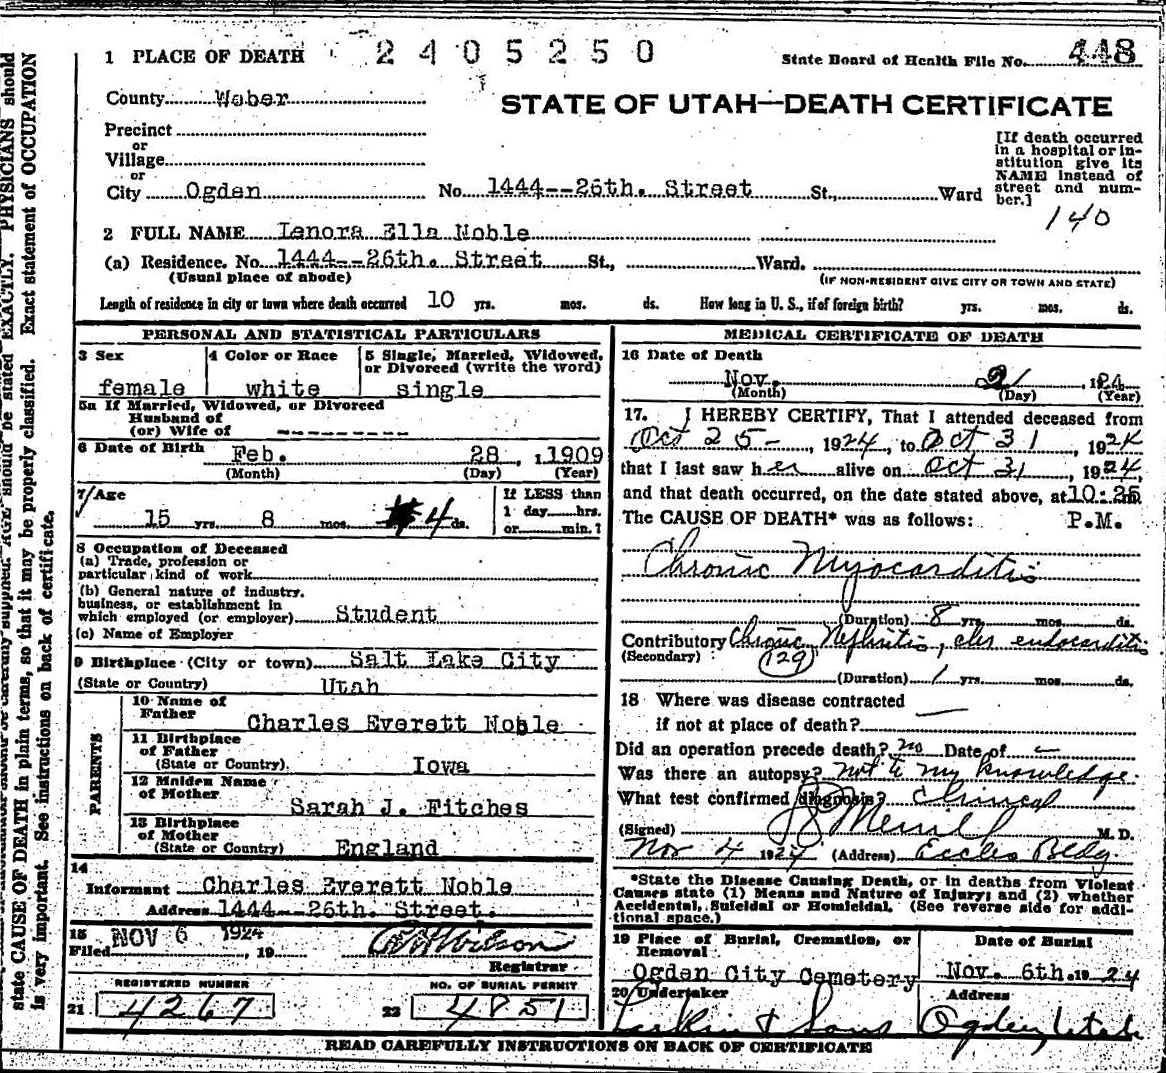 1 PLACE OF DEATH 2405250 State Board of Health File No. 448
County Weber
STATE OF UTAH—DEATH CERTIFICATE
Precinct
or
Village
or
City Ogden No. 1444--26th. Street St., Ward
[If death occurred
in a hospital or in-
stitution give its
NAME instead of
street and num-
ber.]
140
2 FULL NAME Lenora Ella Noble
(a) Residence. No. 1444--26th. Street St., Ward.
(Usual place of abode) (IF NON-RESIDENT GIVE CITY OR TOWN AND STATE)
Length of residence in city or town where death occurred 10 yrs. mos. ds. How long in U. S., if of foreign birth? yrs. mos. ds.
PERSONAL AND STATISTICAL PARTICULARS
3 Sex 4 Color or Race 5 Single, Married, Widowed,
or Divorced (write the word)
female white single
5a If Married, Widowed, or Divorced
Husband of
(or) Wife of ---------
6 Date of Birth Feb. 28, 1909
(Month) (Day) (Year)
7 Age
15 yrs. 8 mos. 4 ds.
If LESS than
1 day hrs.
or min.?
8 Occupation of Deceased
(a) Trade, profession or
particular kind of work
(b) General nature of industry,
business, or establishment in
which employed (or employer) Student
(c) Name of Employer
9 Birthplace (City or town) Salt Lake City
(State or Country) Utah
PARENTS
10 Name of
Father Charles Everett Noble
11 Birthplace
of Father
(State or Country) Iowa
12 Maiden Name
of Mother
Sarah J. Fitches
13 Birthplace
of Mother
(State or Country) England
14
Informant Charles Everett Noble
Address 1444--26th. Street.
15 NOV 6 1924
Filed , 19 Wilson
Registrar
REGISTERED NUMBER NO. OF BURIAL PERMIT
21 4267 22 4851
MEDICAL CERTIFICATE OF DEATH
16 Date of Death
Nov. , 1924
(Month) (Day) (Year)
17. I HEREBY CERTIFY, That I attended deceased from
Oct 25 - , 1924, to Oct 31 , 1924
that I last saw her alive on Oct 31 , 1924,
and that death occurred, on the date stated above, at 10:25
The CAUSE OF DEATH* was as follows: P.M.
Chronic Myocarditis
(Duration) 8 yrs. mos. ds.
Contributory Chronic Nephritis, endocarditis
(Secondary) 129
(Duration) 1 yrs. mos. ds.
18 Where was disease contracted
if not at place of death?
Did an operation precede death? no Date of -
Was there an autopsy? not to my knowledge.
What test confirmed diagnosis? Clinical
(Signed) Merrill M. D.
Nov 4 1924 (Address) Eccles Bldg
*State the Disease Causing Death, or in deaths from Violent
Causes state (1) Means and Nature of Injury; and (2) whether
Accidental, Suicidal or Homicidal. (See reverse side for addi-
tional space.)
19 Place of Burial, Cremation, or
Removal Date of Burial
Ogden City Cemetery Nov. 6th. 1924
20 Undertaker Address
Larkin & Sons Ogden, Utah
READ CAREFULLY INSTRUCTIONS ON BACK OF CERTIFICATE
AGE should be stated EXACTLY. PHYSICIANS should
state CAUSE OF DEATH in plain terms, so that it may be properly classified. Exact statement of OCCUPATION
is very important. See instructions on back of certificate.